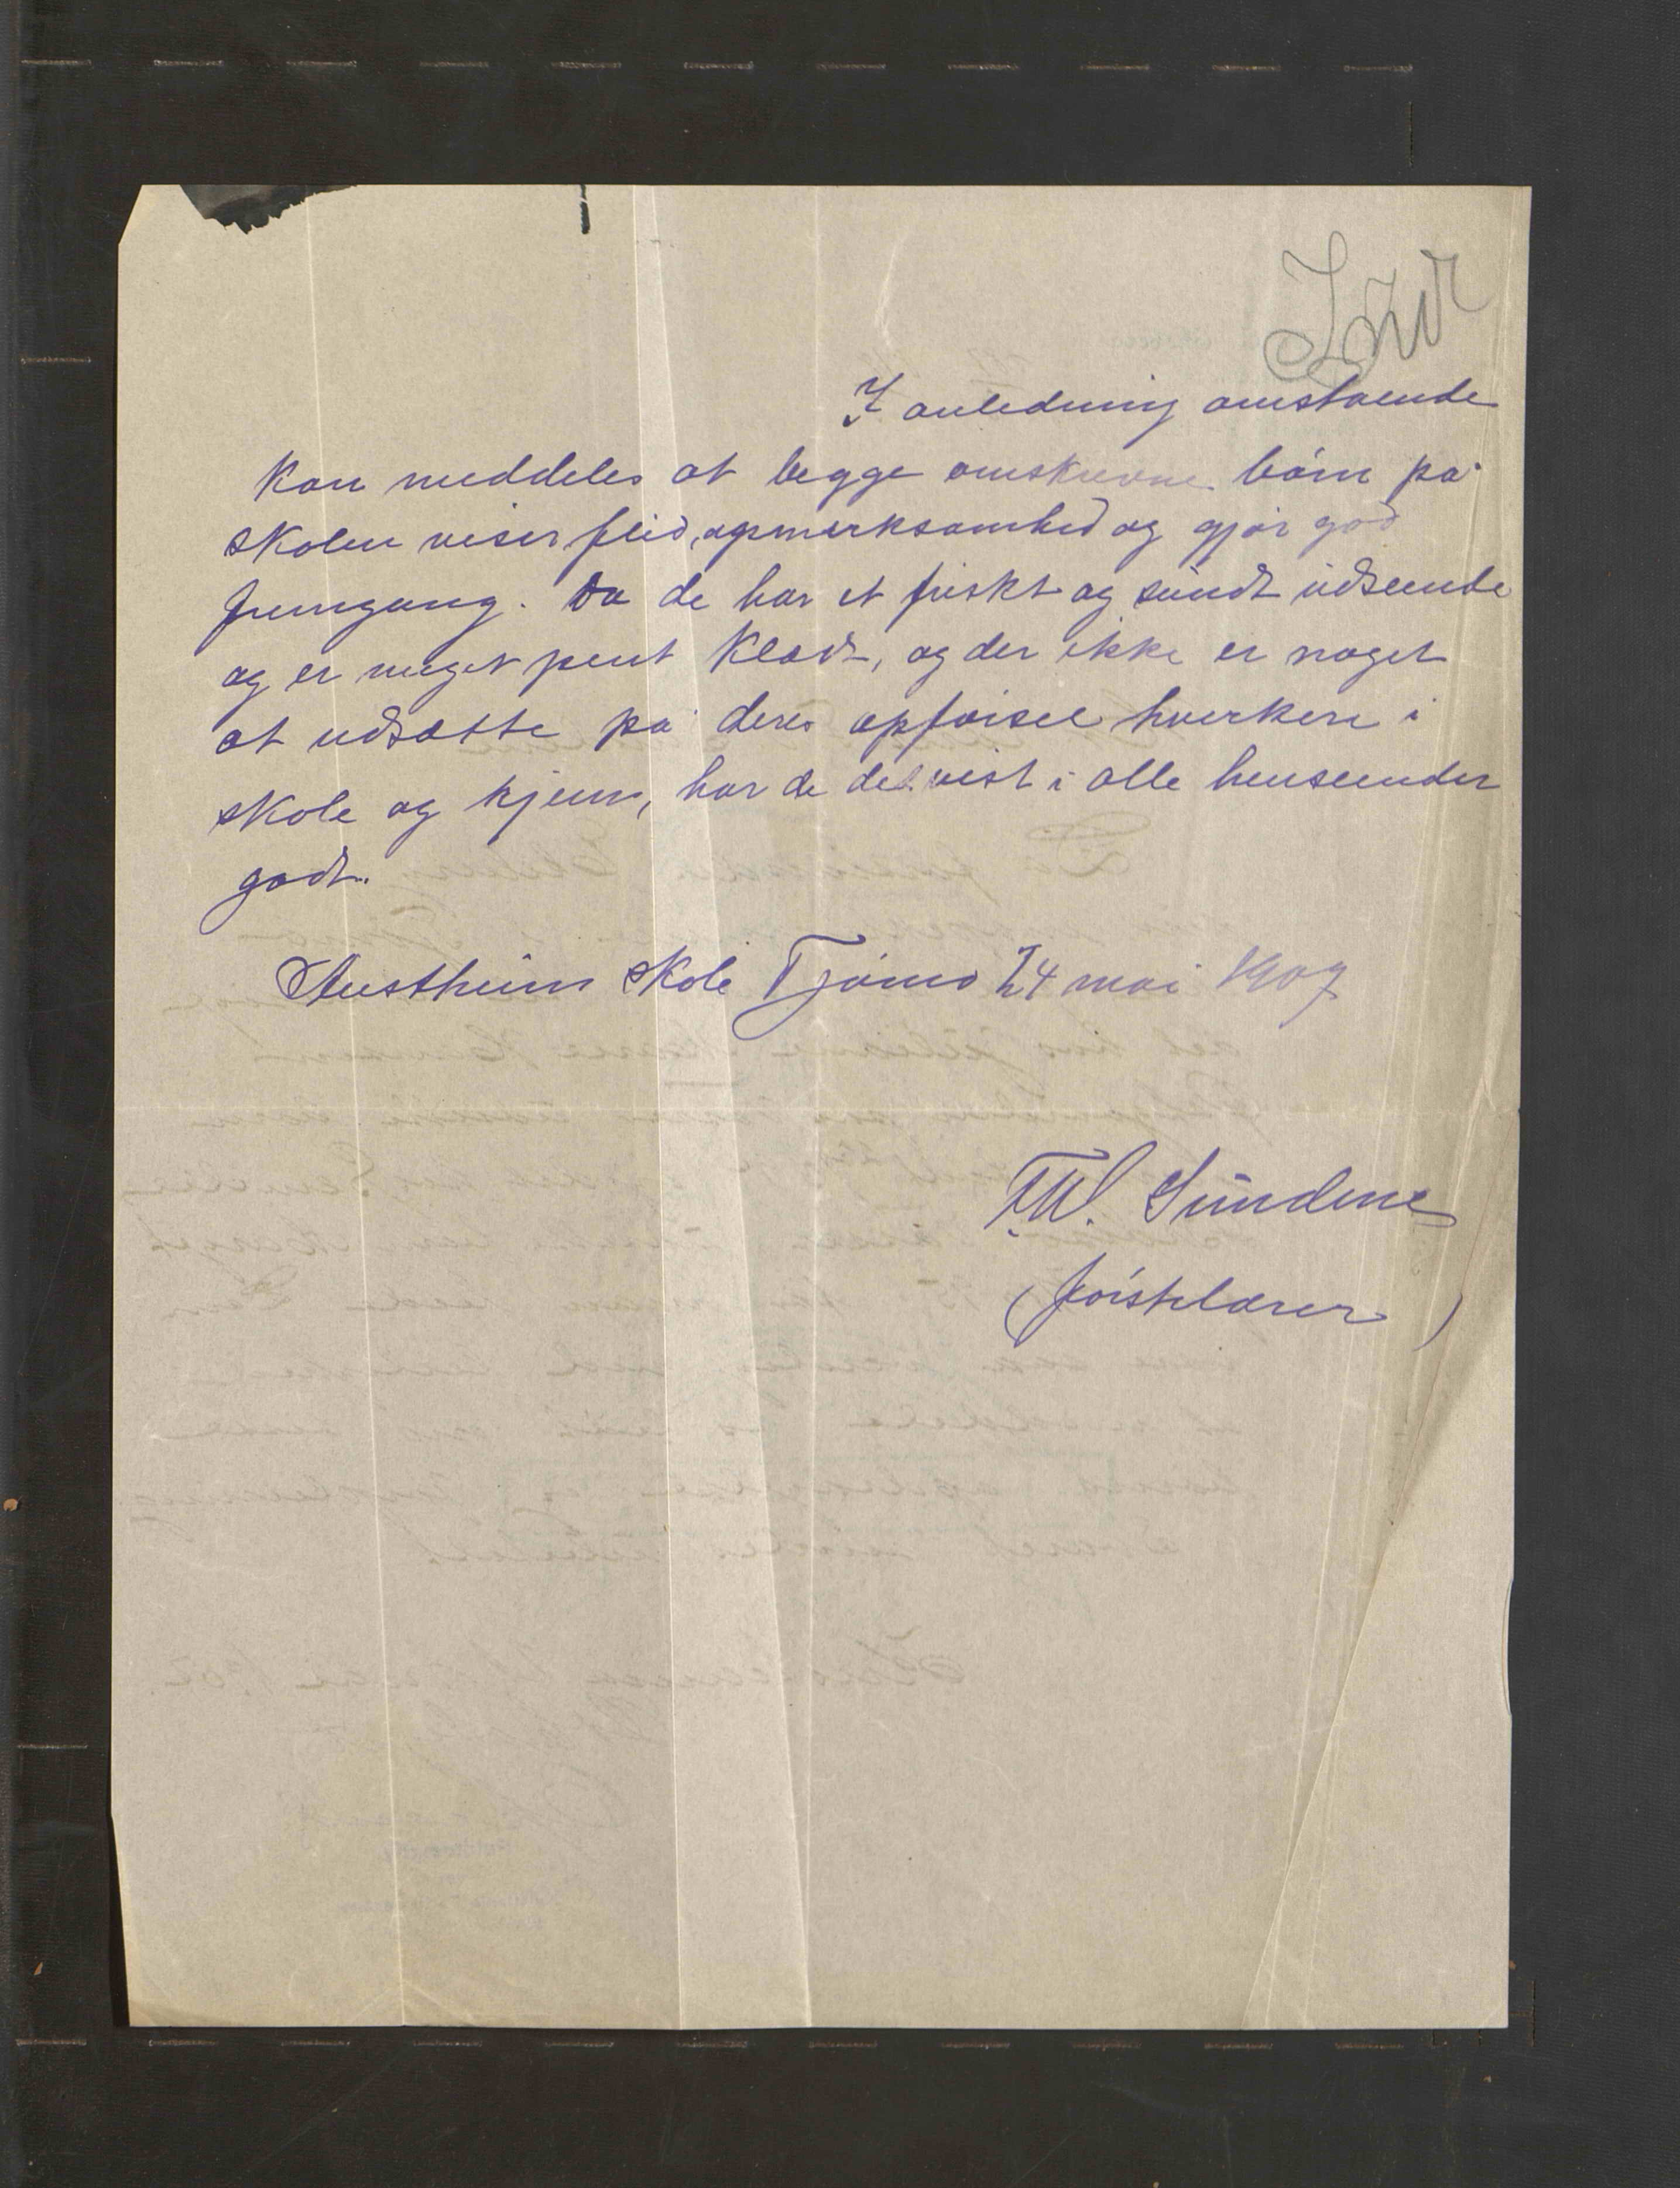 I anledning omstaende
kan meddeles at begge omskrevne børn på
skolen viser flid, opmerksomhed og gjør god
fremgang. Da de har et friskt og sundt udseende
og er meget pent klædt, og der ikke er noget
at udsætte på deres opførsel hverken i
skole og hjem, har de det vist i alle henseender
godt.
Austheim skole Tjømø 24 mai 1907
F.M. Sundene
(førstelærer)